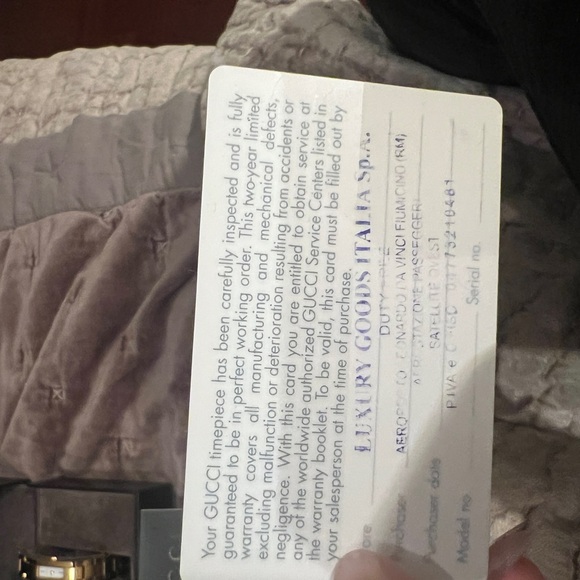 Your GUCCI timepiece has been carefully inspected and is fully
guaranteed to be in perfect working order. This two-year limited
warranty covers all manufacturing and mechanical defects,
excluding malfunction or deterioration resulting from accidents or
negligence. With this card you are entitled to obtain service at
any of the worldwide authorized GUCCI Service Centers listed in
the warranty booklet. To be valid, this card must be filled out by
your salesperson at the time of purchase.
LUXURY GOODS ITALIA S.p.A.
DUTY FREE
LEONARDO DA VINCI FIUMICINO (RM)
SATELLITE OVEST
Purchase date
Model no. Serial no.